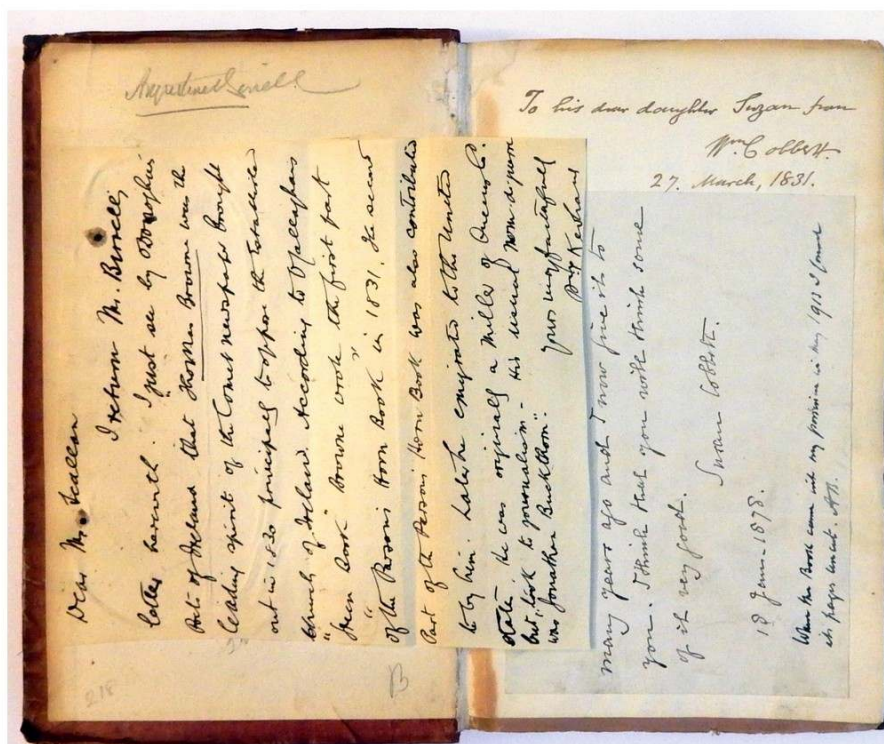 Augustine Birrell
Dear Mr
I return Mr. Birrell's
letter herewith. I just see by O'Donoghue's
Poets of Ireland that Thomas Browne was the
leading spirit of the Comet newspaper brought
out in 1830 principally to oppose the Established
Church of Ireland. According to O'Callaghan's
"Green Book" "Browne wrote the first part
of the Parsons Horn Book" in 1831. The second
Part of the Parsons Horn Book was also contributed
to by him. Later he emigrated to the United
States. He was originally a Miller of Queens Co.
but "took to journalism" – His usual nom de plume
was "Jonathan Buckthorn".
Yours very faithfully
218
B
To his dear daughter Suzan from
Wm. Cobbett.
27. March, 1831.
many years ago and I now give it to
you. I think that you will think some
of it very good.
Susan Cobbett.
18 June - 1878.
When this Book came into my possession in May 1911 I found
its pages uncut. A.B.